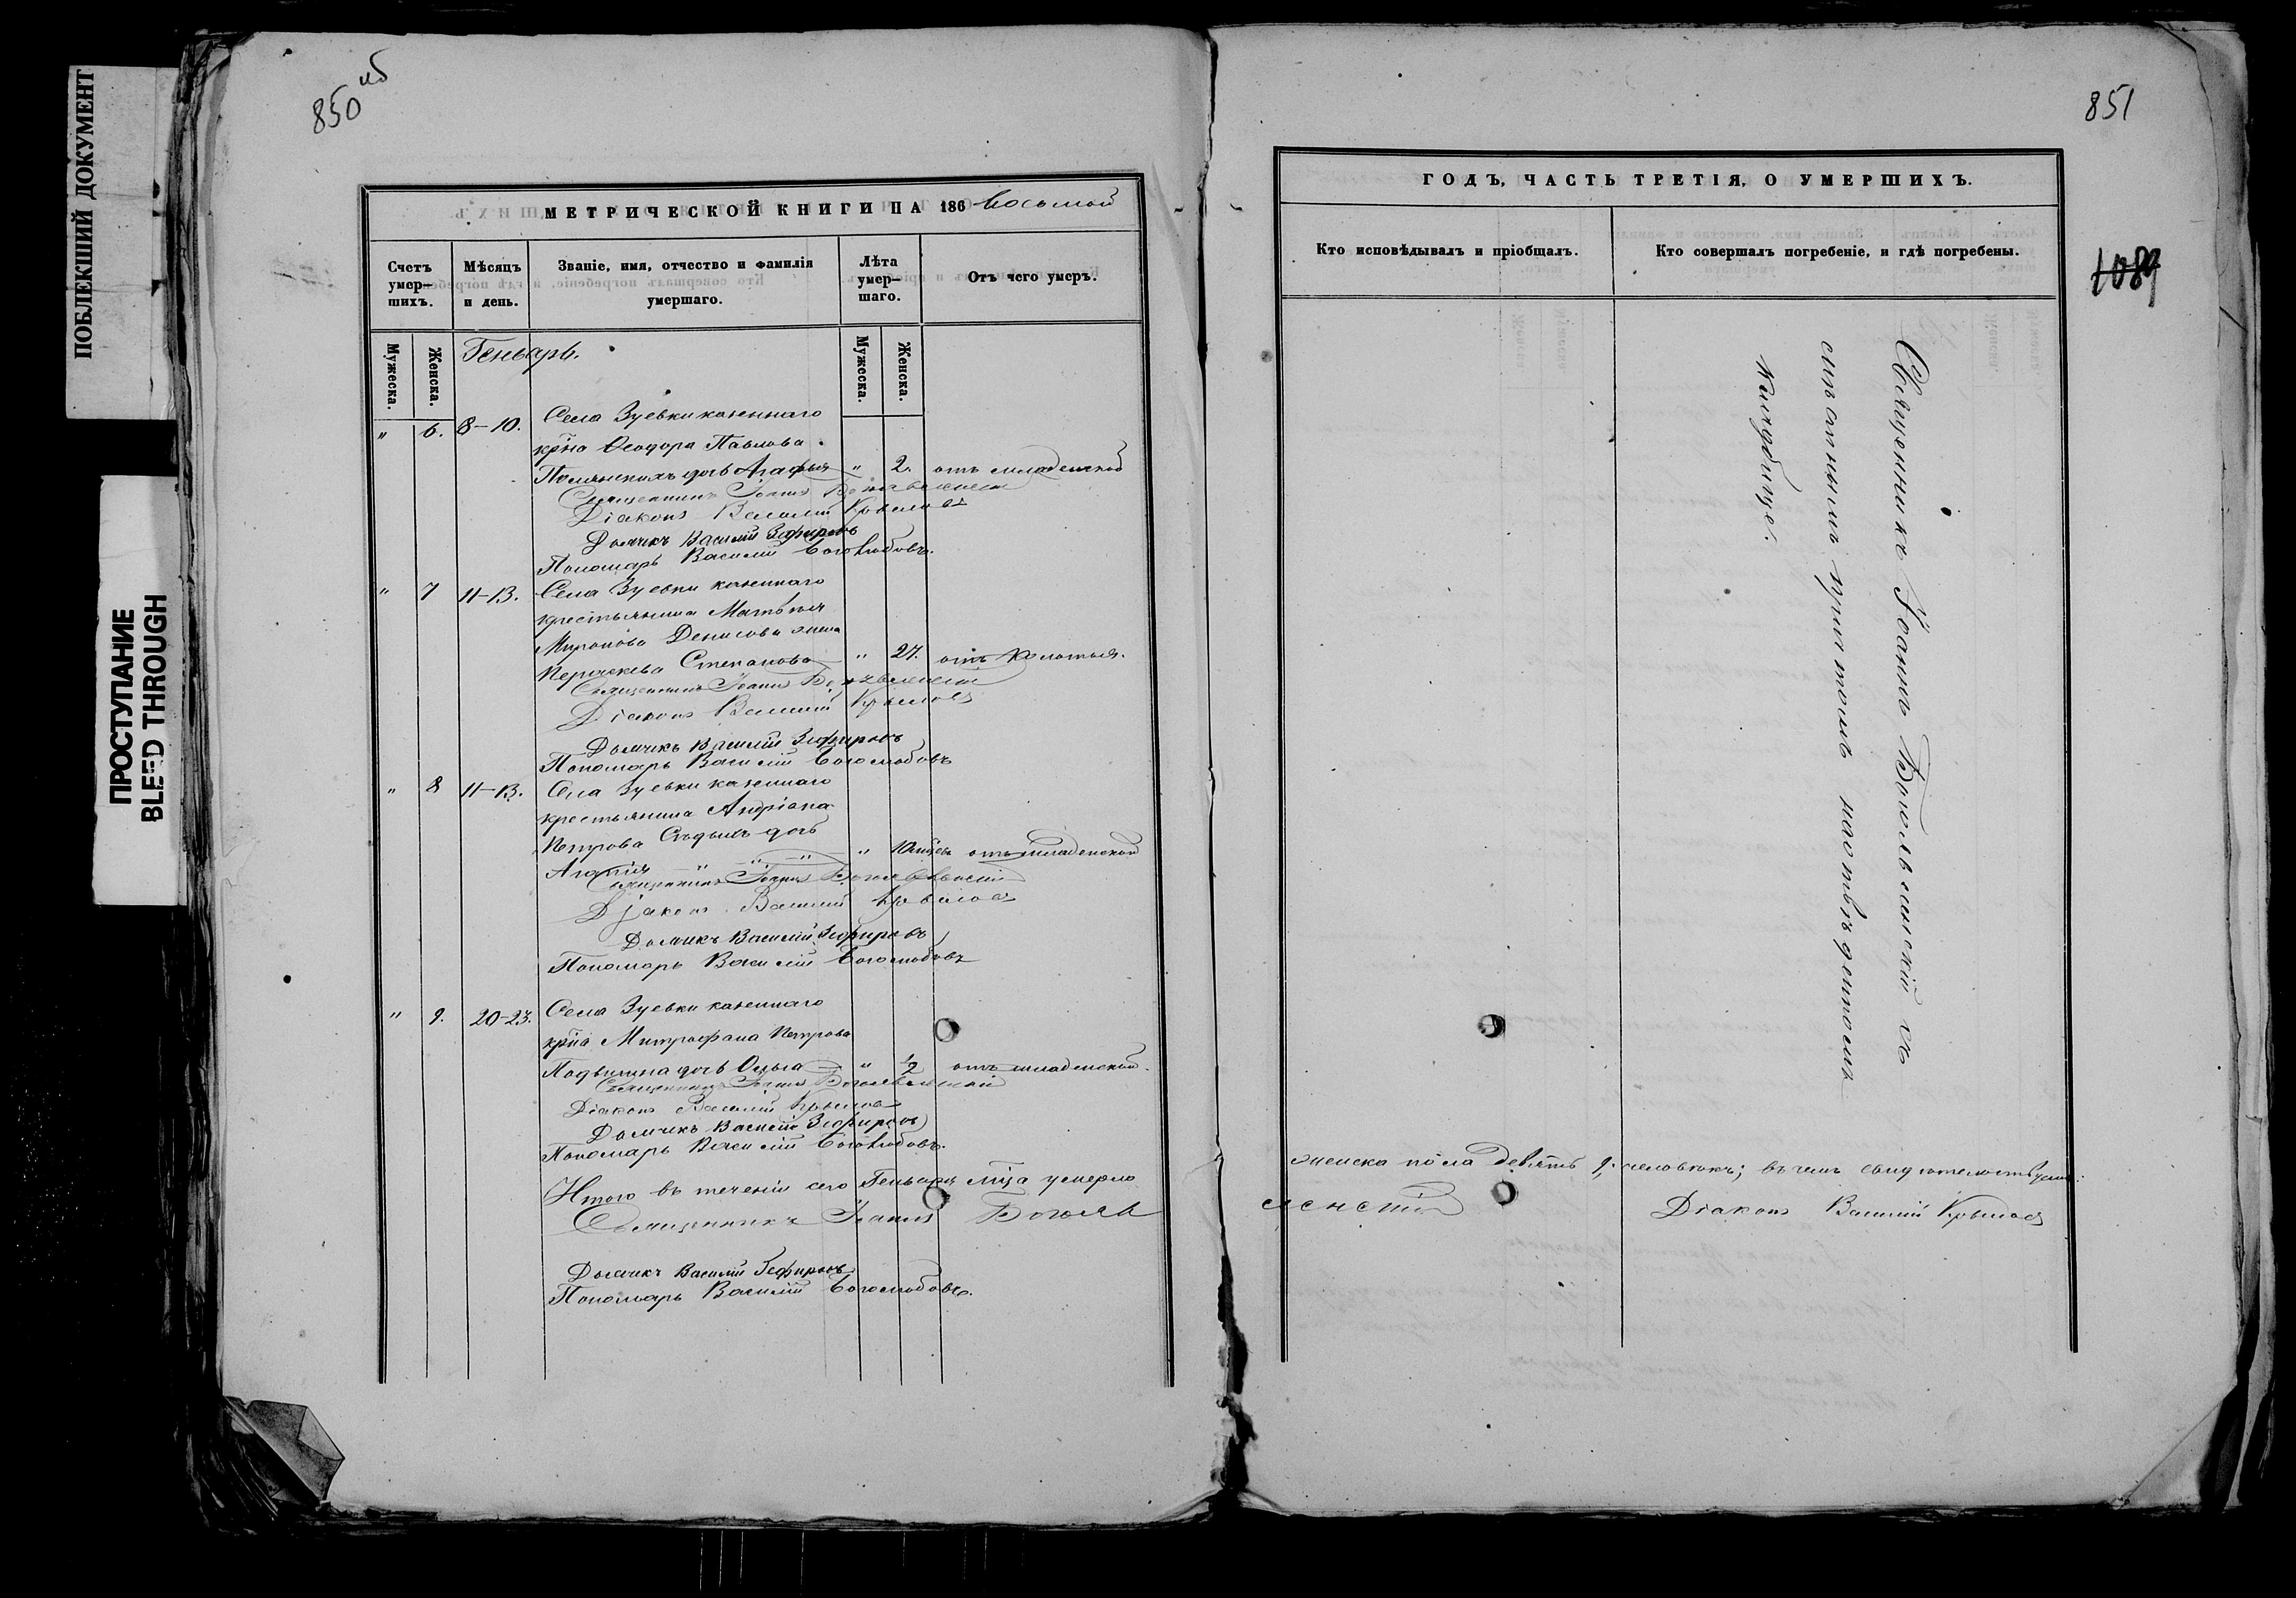 ПОБЛЕКШИЙ ДОКУМЕНТ
ПРОСТУПАНИЕ
BLEED THROUGH
850 об
МЕТРИЧЕСКОЙ КНИГИ НА 186 восьмой
Счетъ умер-шихъ.
Мѣсяцъ и день.
Званіе, имя, отчество и фамилія умершаго.
Лѣта умер-шаго.
Отъ чего умеръ.
Мужеска.
Женска.
Мужеска.
Женска.
Геньварь.
" 6. 8-10. Села Зуевки казеннаго
крѣна Ѳеодора Павлова
дочь Агафья " 2. отъ младенской
Священникъ Іоаннъ Богоявленскій
Діаконъ Василій Крыловъ
Дьячикъ Василій Зефировъ
Пономарь Василій Боголюбовъ.
" 7 11-13. Села Зуевки казеннаго
крестьянина Матвѣя
Миронова Денисова жена
Параскева Степанова " 27. отъ колотья.
Священникъ Іоаннъ Богоявленскій
Діаконъ Василій Крыловъ
Дьячикъ Василій Зефировъ
Пономарь Василій Боголюбовъ
" 8 11-13. Села Зуевки казеннаго
крестьянина Андріана
Петрова дочь
Агапія " " " " 10 мцевъ отъ младенской
Священникъ Іоаннъ Богоявленскій
Діаконъ Василій Крыловъ
Дьячикъ Василій Зефировъ
Пономарь Василій Боголюбовъ
" 9. 20-23. Села Зуевки казеннаго
крѣна Митрофана Петрова
дочь Ольга " 1/2 отъ младенской.
Священникъ Іоаннъ Богоявленскій
Діаконъ Василій Крыловъ
Дьячикъ Василій Зефировъ
Пономарь Василій Боголюбовъ.
Итого въ теченіи сего Геньваря мца умерло
Священникъ Іоаннъ Богояв
Дьячикъ Василій Зефировъ
Пономарь Василій Боголюбовъ.
851
1089
ГОДЪ, ЧАСТЬ ТРЕТІЯ, О УМЕРШИХЪ.
Кто исповѣдывалъ и пріобщалъ.
Кто совершалъ погребеніе, и гдѣ погребены.
Священникъ Іоаннъ Богоявленскій съ
симъ причтомъ на отведенномъ
кладбищѣ.
женска пола девять 9. человѣкъ; въ чемъ свидѣтельствуемъ:
ленскій
Діаконъ Василій Крыловъ